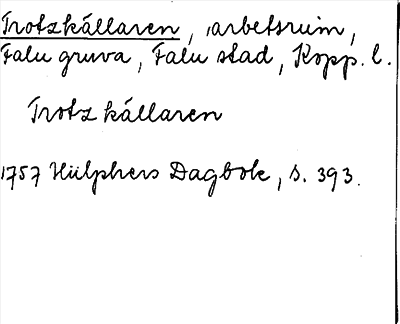 Trotzkällaren, arbetsrum,
Falu gruva, Falu stad, Kopp. l.
Trotz källaren
1757 Hülphers Dagbok, s. 393.